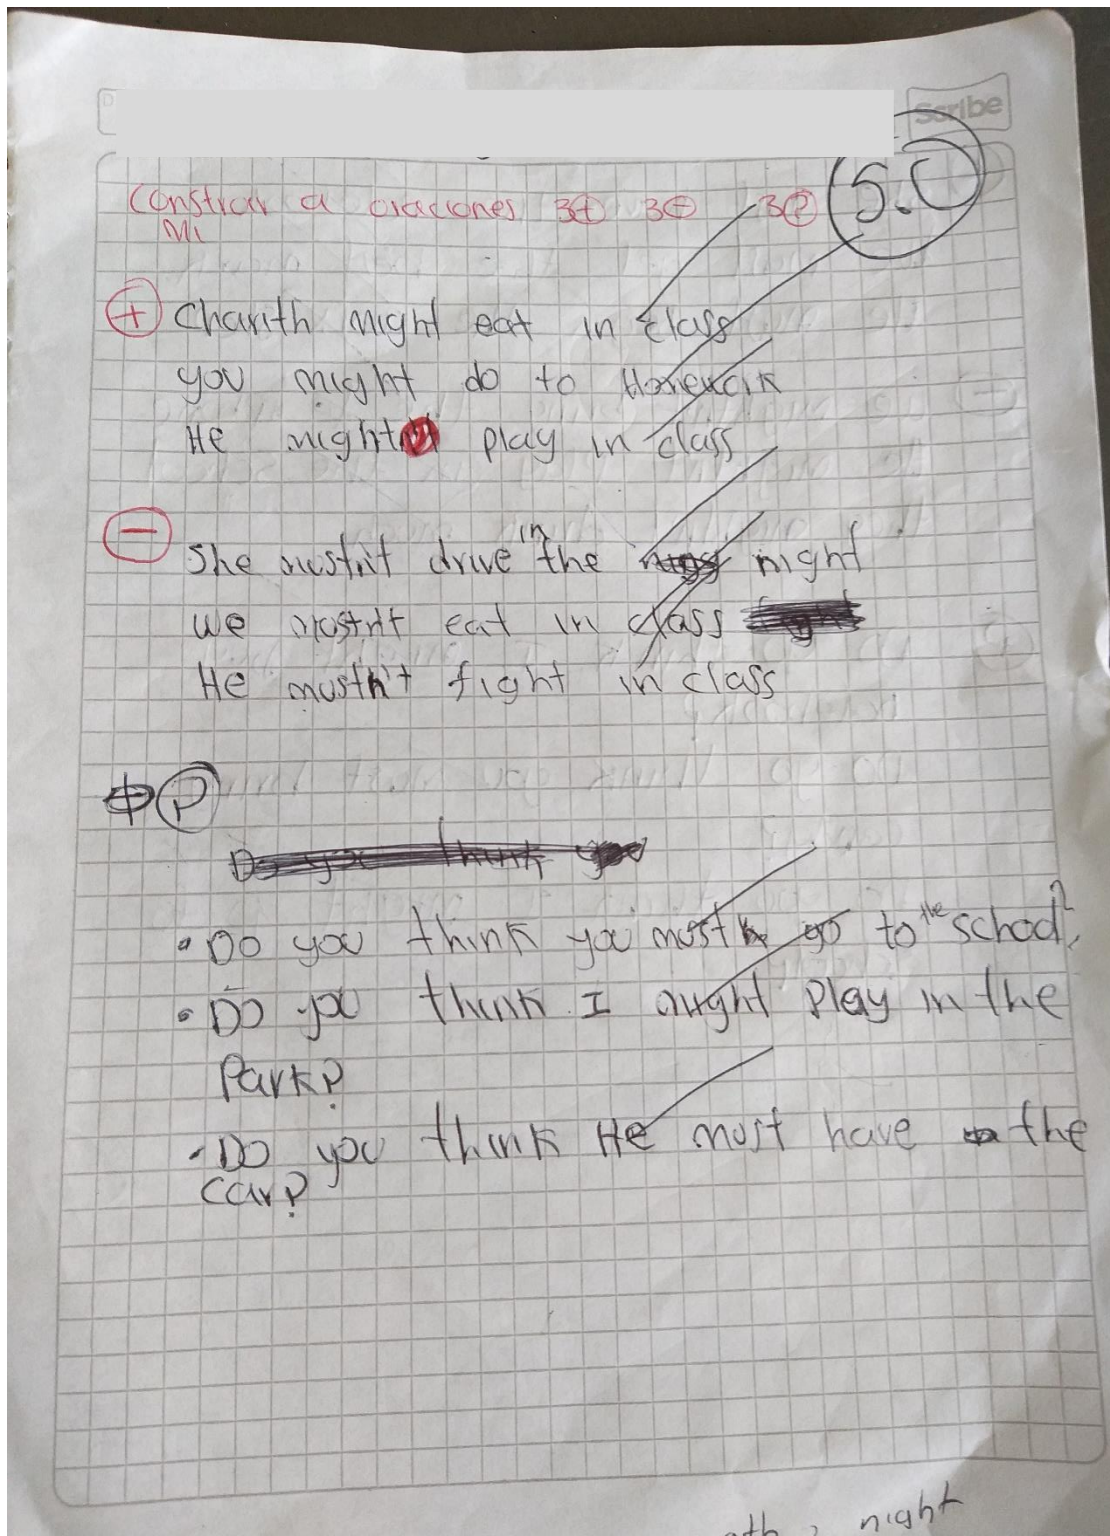 Scribe
5.0
Construir a oraciones 3+ 3- 3?
+ Charith might eat in class
you might do to Homework
He might play in class
- She mustn't drive in the night
we mustn't eat in class
He mustn't fight in class
?
Do you think you
• Do you think you must go to the school?
• Do you think I might play in the
Park?
• Do you think He must have the
car?
night